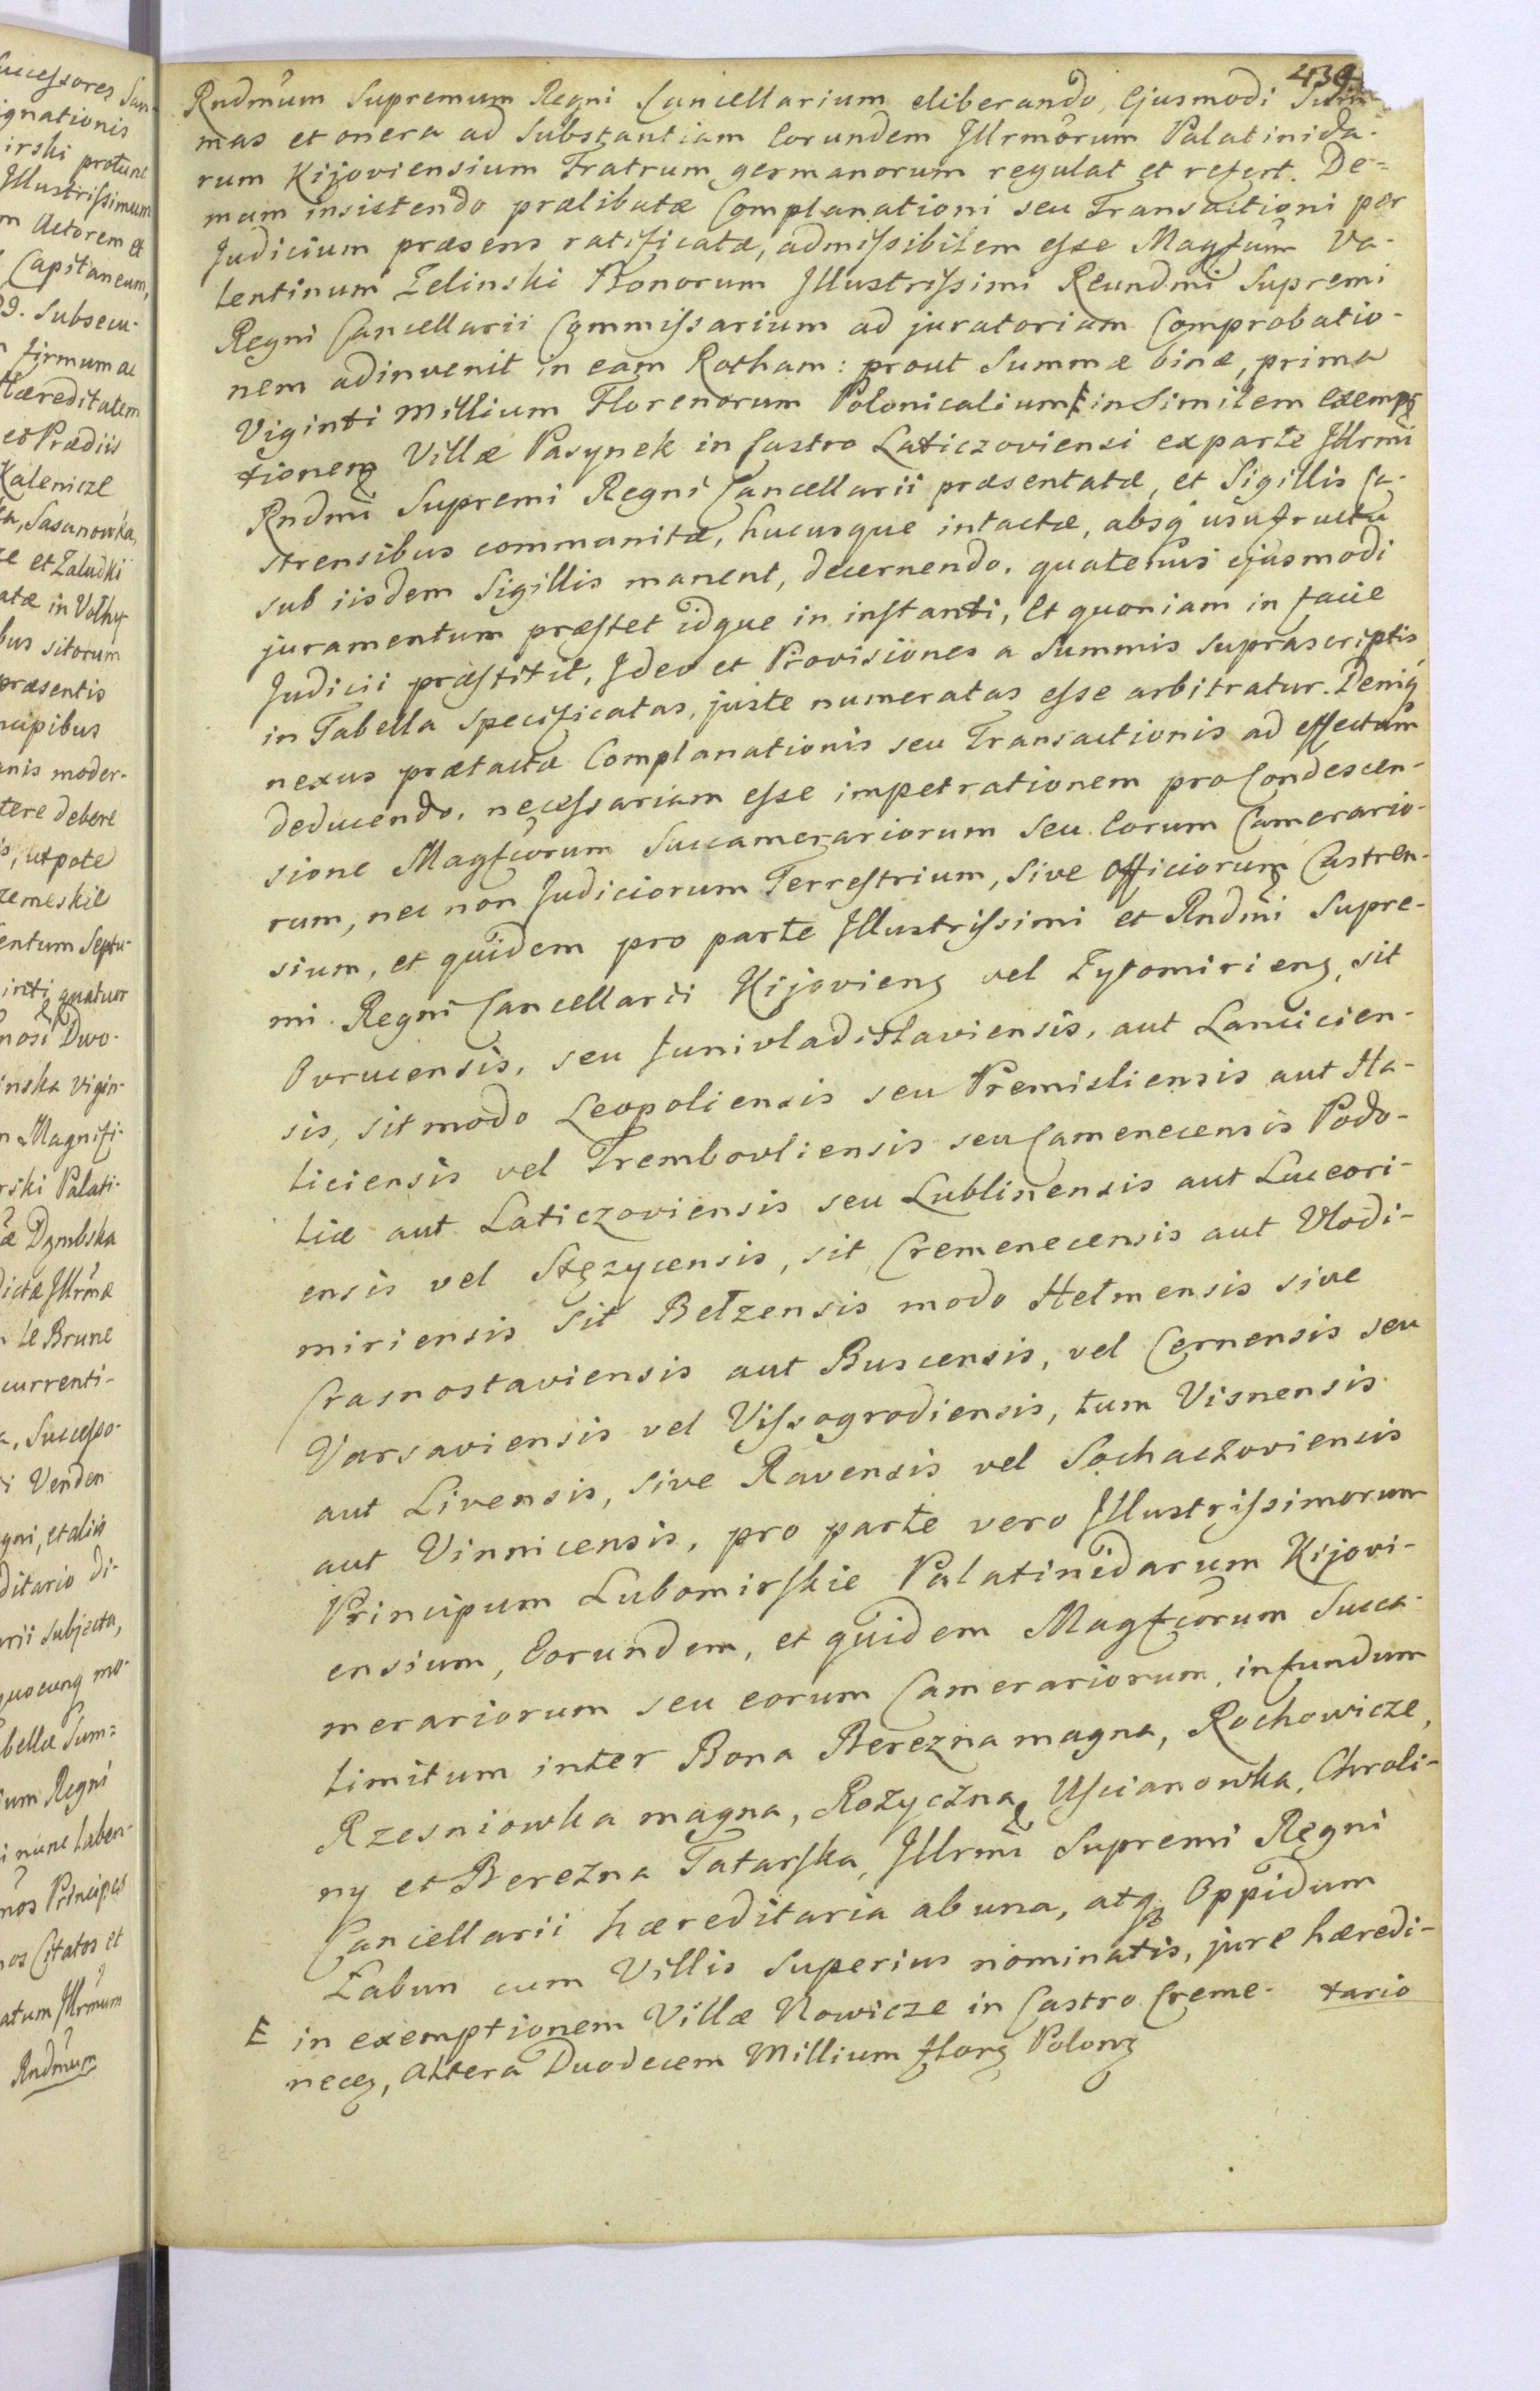 439
Rndm̃um Supremum Regni Cancellarium eliberando, Ejusmodi Sum̃-
mas et onera ad Substantiam Eorundem Jllrm̃orum Palatinida-
rum Kijoviensium Fratrum germanorum regulat et refert. De-
mum insistendo prælibatæ Complanationi seu Transactioni per
Judicium præsens ratificatæ, admissibilem esse Magfcum̃ Va-
lentinum Zelinski Bonorum Jllustrissimi Reundm̃i Supremi
Regni Cancellarii Commissarium ad juratoriam Comprobatio-
nem adinvenit in eam Rotham: prout Summæ binæ, prima
Viginti Millium Florenorum Polonicalium E in Similem exemp-
tionem Villæ Pasynek in Castro Laticzoviensi ex parte Jllrm̃i
Rndm̃i Supremi Regni Cancellarii præsentatæ, et Sigillis Ca-
strensibus communitæ, hucusque intactæ, absq̃ usufructu
sub iisdem Sigillis manent, decernendo, quatenus ejusmodi
juramentum præstet idque in instanti, Et quoniam in facie
Judicii præstitit, Jdeo et Provisiones a Summis suprascriptis
in Tabella specificatas, juste numeratas esse arbitratur. Deniq̃
nexus prætactæ Complanationis seu Transactionis ad effectum
deducendo, necessariam esse impetrationem pro Condescen-
sione Magfcorum̃ Succamerariorum seu Eorum Camerario-
rum, nec non Judiciorum Terrestrium, Sive Officiorum Castren-
sium, et quidem pro parte Jllustrissimi et Rndm̃i Supre-
mi Regni Cancellarii Kijovieng vel Zytomirieng, sit
Ovrucensis, seu Junivladislaviensis, aut Lancicien-
sis, sit modo Leopoliensis seu Premisliensis aut Ha-
liciensis vel Trembovliensis seu Camenecensis Podo-
liæ aut Laticzoviensis seu Lublinensis aut Luceori-
ensis vel Stęzycensis, sit Cremenecensis aut Vlodi-
miriensis Sit Bełzensis modo Hełmensis sive
Crasnostaviensis aut Buscensis, vel Cernensis seu
Varsaviensis vel Vissogrodiensis, tum Visnensis
aut Livensis, sive Ravensis vel Sochaczoviensis
aut Vinnicensis, pro parte vero Jllustrissimorum
Principum Lubomirskie Palatinidarum Kijovi-
ensium, Eorundem, et quidem Magfcorum̃ Succa-
merariorum seu eorum Camerariorum, in fundum
limitum inter Bona Berezna magna, Rochowicze,
Rzesniowka magna, Rożyczna, Uscianowka, Chroli-
ny et Berezna Tatarska, Jllrm̃i Supremi Regni
Cancellarii hæreditaria ab una, atq̃ Oppidum
Łabun cum Villis superius nominatis, jure hæredi-
tario
E in exemptionem Villæ Nowicze in Castro Creme-
neceg, altera Duodecem Millium florg Polong
uccessores Sum-
ignationis
irski protunc
Jllustrissimum
m Actorem et
Capitaneum,
Subsecu-
firmum ac
Hæreditatem
et Prædiis
Kalenicze
Sasanowka,
et Zaludki
atæ in Volhy-
bus sitorum
præsentis
ncipibus
anis moder-
tere debere
utpote
zemeskie
entum Septu-
inti quatuor
nosi Dwo-
inska Vigin-
n Magnifi-
rski Palati-
æ Dąmbska
dictæ Jllrm̃æ
le Brune
currenti-
Successo-
i Venden
gni, et aliis
ditario di-
arii subjecta,
quocunq̃ mo-
bellæ Sum-
um Regni
i nunc Łaben-
nos Principes
nos Citatos et
atum Jllrm̃um
Rndm̃um